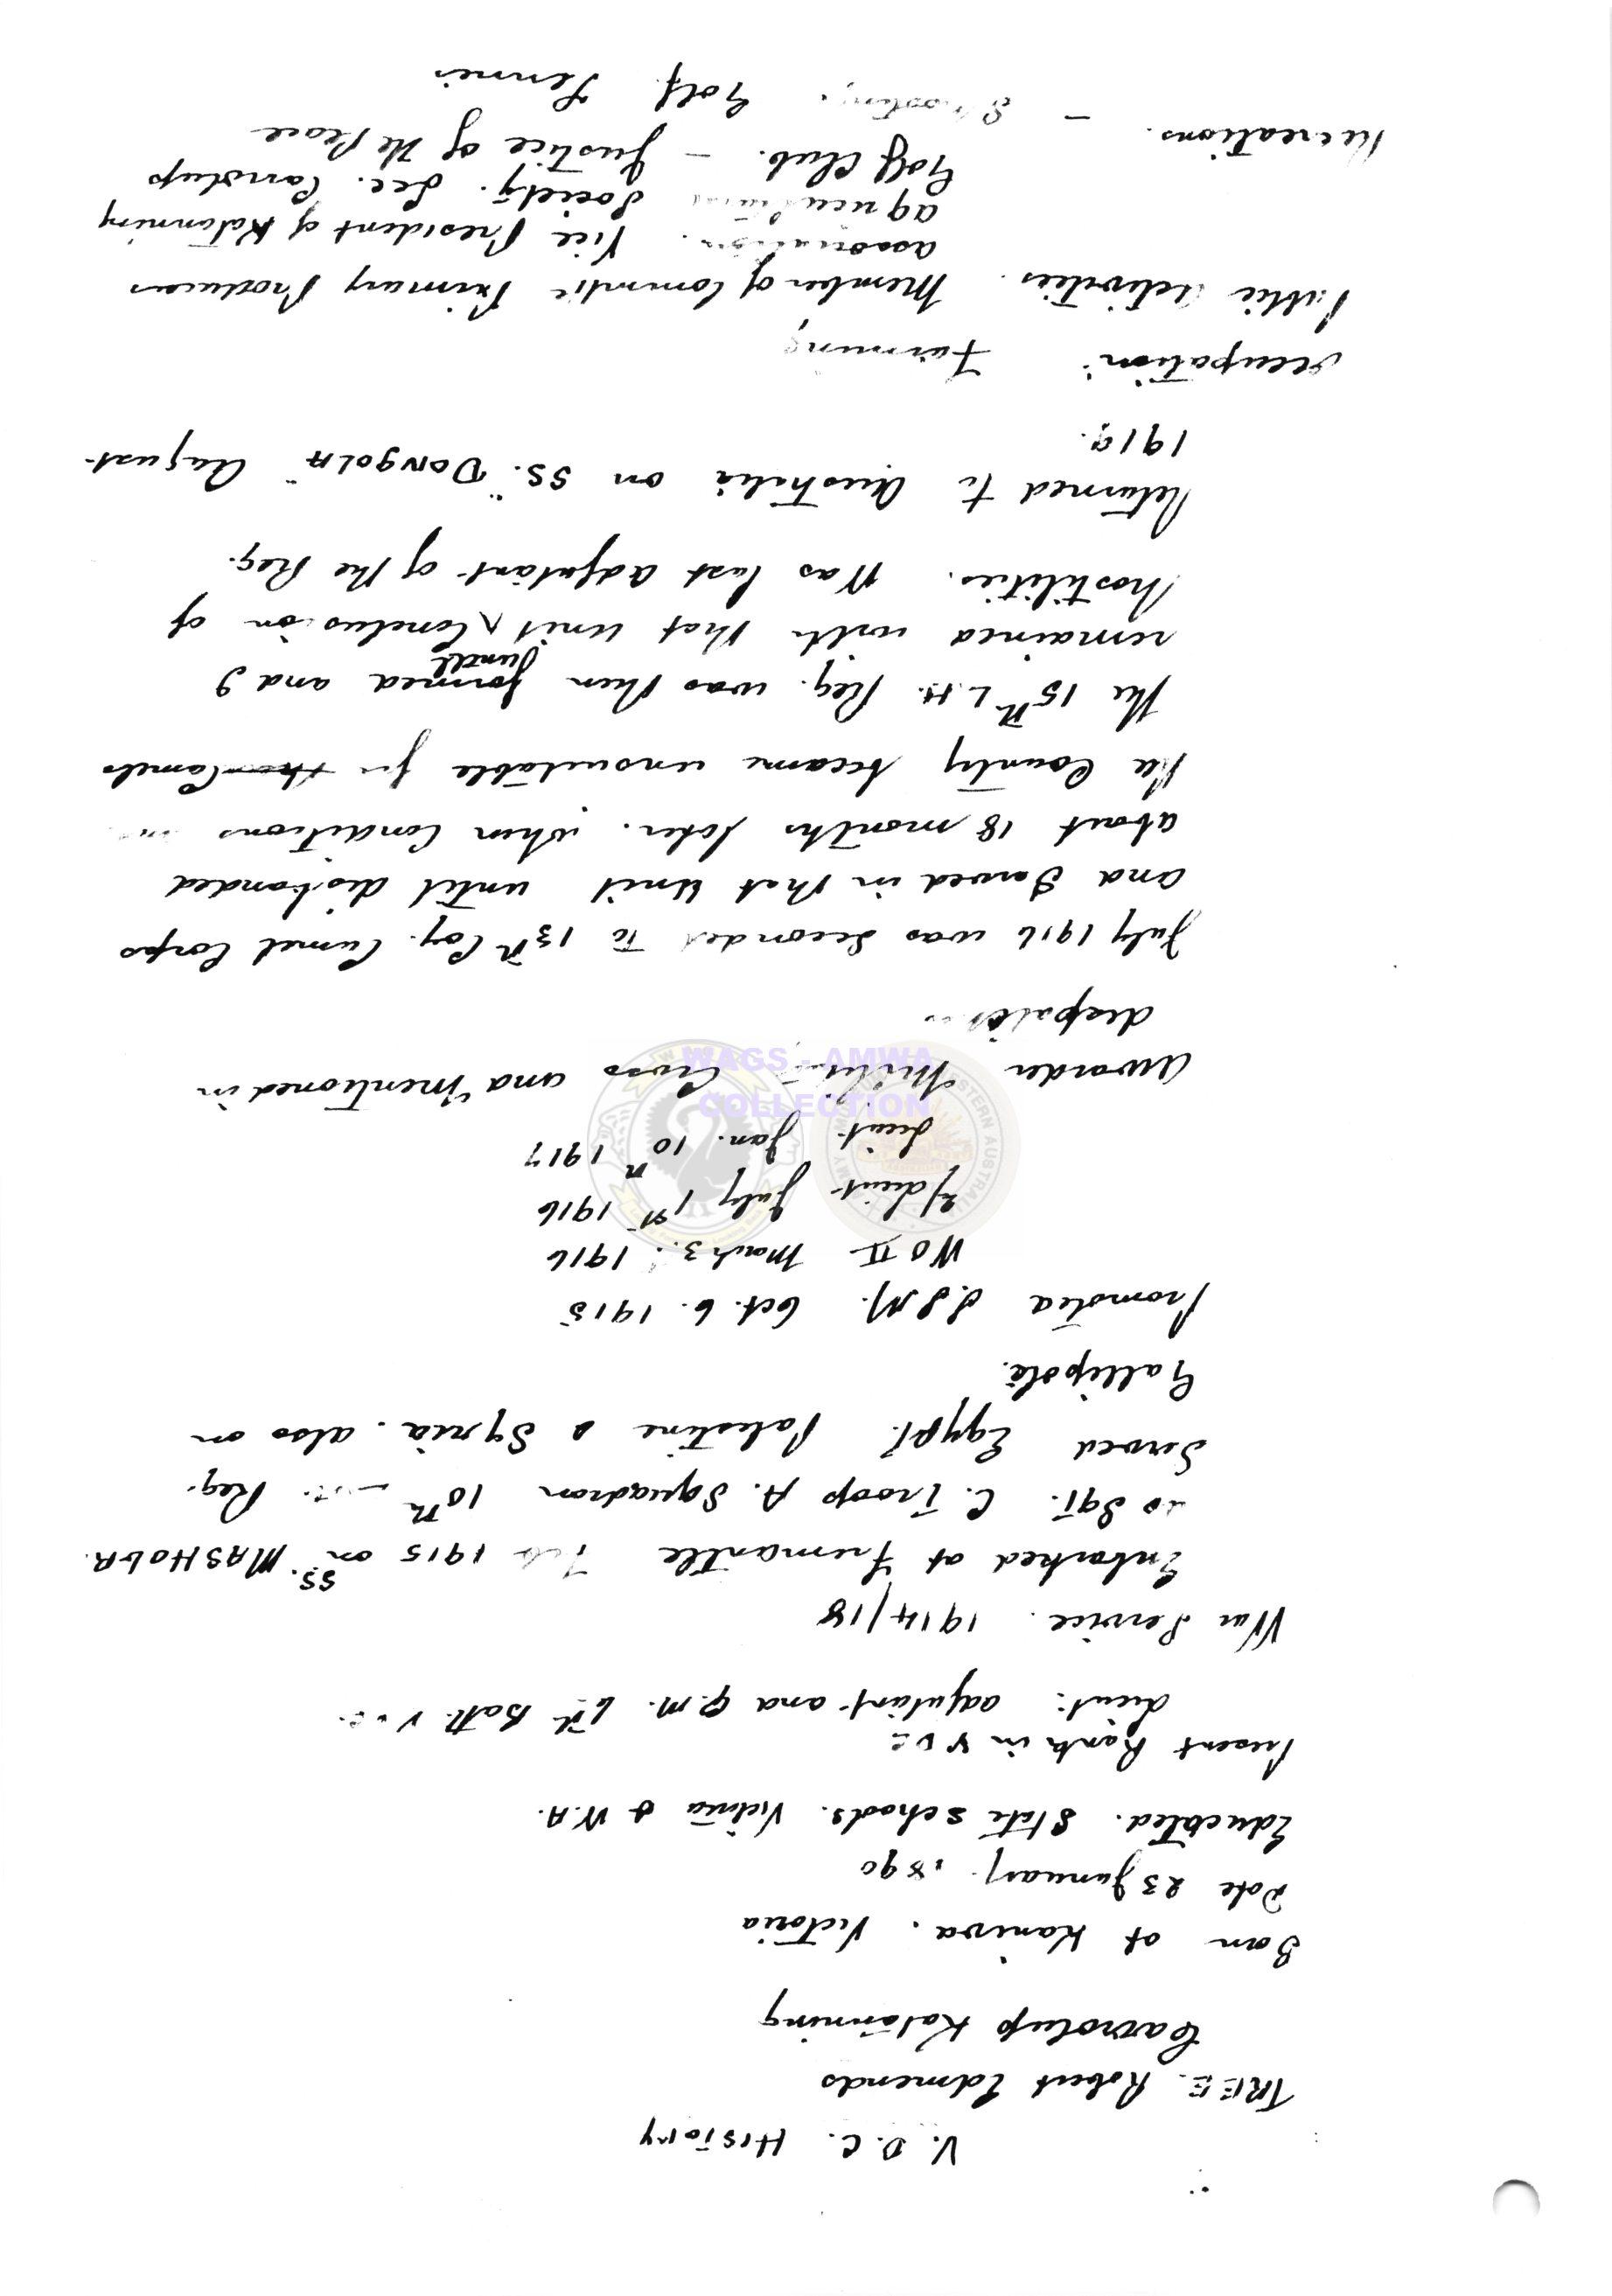 V. D. C. History
TREE. Robert Edmends
Carrolup Katanning
Born at Kaniva. Victoria
Date 23 January. 1890
Educated. State Schools. Victoria & W.A.
Present Rank in V D C
Lieut: Adjutant and Q.M. 6th Batt. V D C.
War Service. 1914/18
Embarked at Fremantle Feb 1915 on SS. MASHOBA.
as Sgt. C. Troop A. Squadron 10th Reg.
Served Egypt. Palestine & Syria. also on
Gallipoli.
Promoted S.S.M. Oct. 6. 1915
WO II March 3. 1916
2/Lieut July 1st 1916
Lieut Jan. 10th 1917
Awarded Military Cross and mentioned in
dispatches
July 1916 was seconded to 13th Coy. Camel Corps
and Served in that Unit until disbanded
about 18 months later. when Conditions in
the Country became unsuitable for Camels
The 15th L.H. Reg. was then formed and I
remained with that Unit until Conclusion of
hostilities. Was last Adjutant of the Reg.
Returned to Australia on SS. "DONGOLA" August
1919.
Occupation: Farming
Public Activities. Member of Committe Primary Producers
Association. Vice President of Katanning
Agricultural Society. Sec. Carrolup
Golf Club. - Justice of the Peace
Recreations. - Shooting. Golf Tennis
WAGS - AMWA
COLLECTION